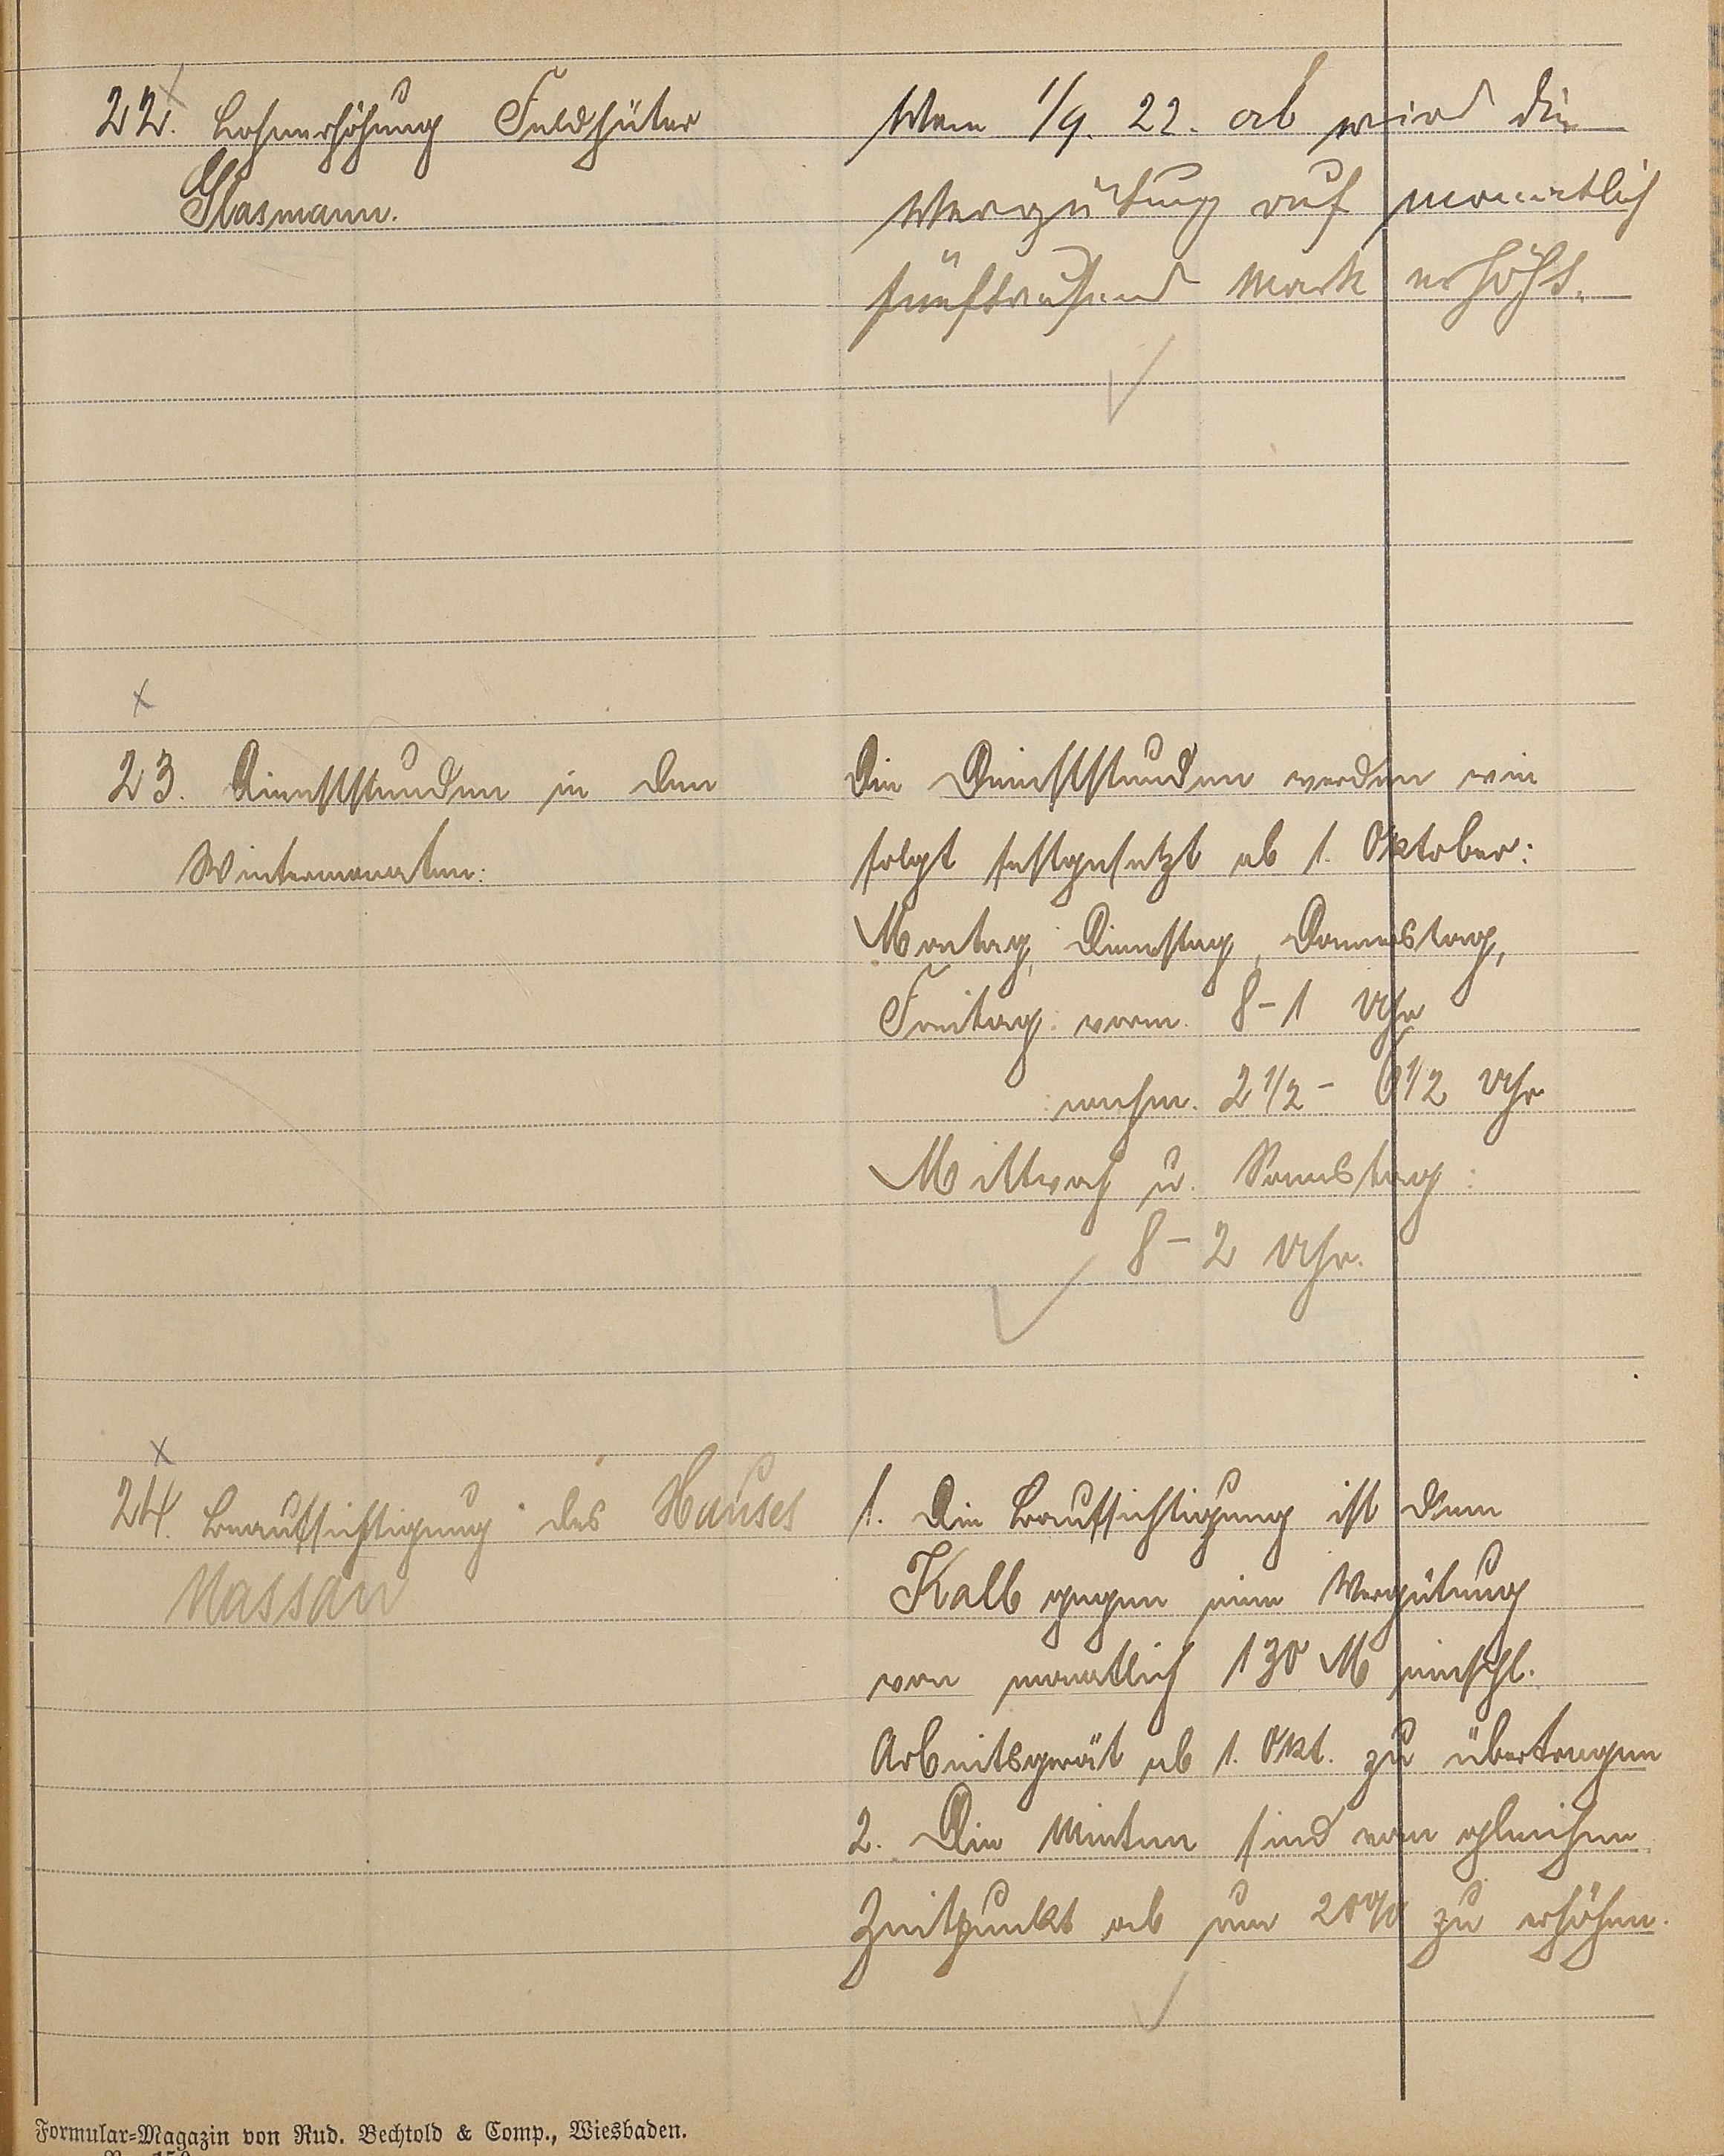 22. Lohnerhöhung Feldhüter
Glasmann.
Vom 1/9. 22. ab wird die
Vergütung auf monatlich
fünftausend Mark erhöht.
23. Dienststunden in den
Wintermonaten:
Die Dienststunden werden wie
folgt festgesetzt ab 1. Oktober:
Montag, Dienstag, Donnerstag,
Freitag: vorm. 8-1 Uhr
nachm. 2 1/2 - 6 1/2 Uhr
Mittwoch u. Samstag:
8-2 Uhr.
24. Beaufsichtigung des Hauses
Nassau
1. Die Beaufsichtigung ist dem
Kalb gegen eine Vergütung
von monatlich 130 M einschl.
Arbeitsgerät ab 1. Okt. zu übertragen
2. Die Mieten sind vom gleichen
Zeitpunkt ab um 20% zu erhöhen.
Formular-Magazin von Rud. Bechtold & Comp., Wiesbaden.